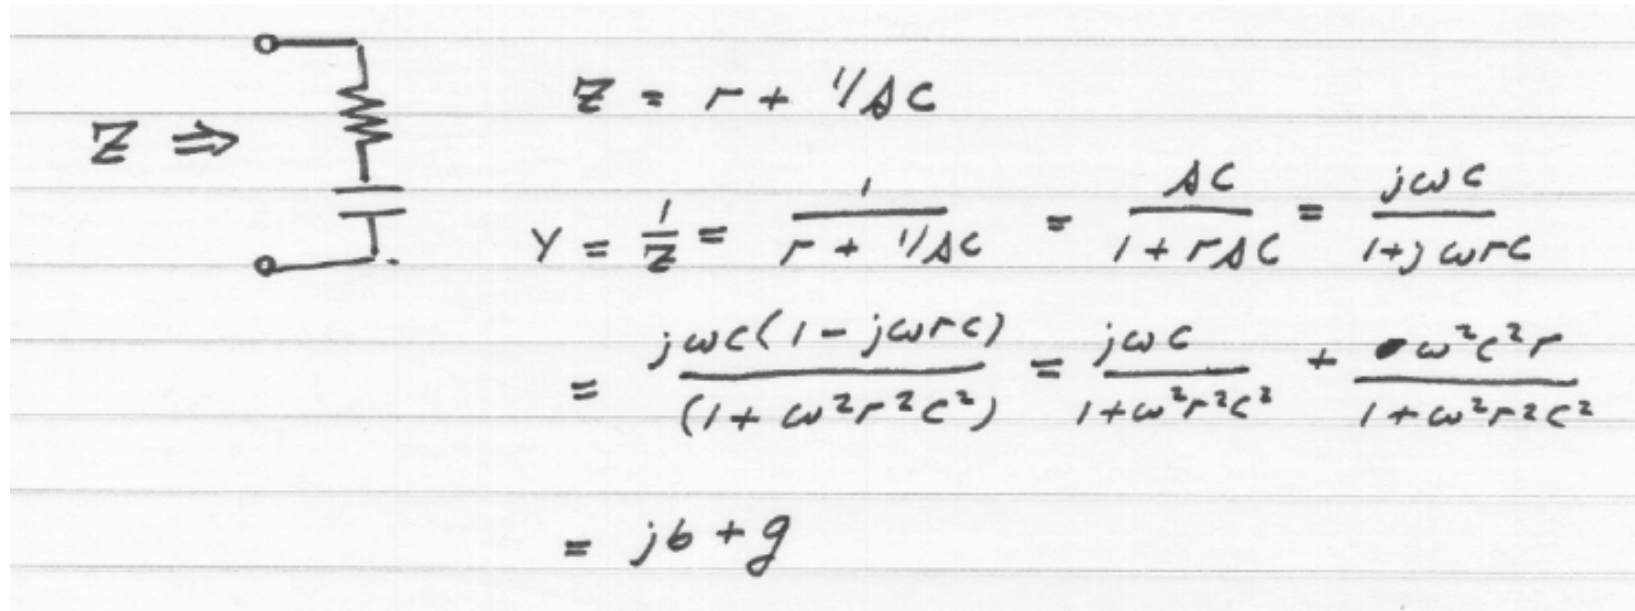 Z = r + 1/sC
Z ⇒
Y = 1/Z = 1/(r + 1/sC) = sC/(1 + rsC) = jωC/(1+jωrC)
= jωC(1 - jωrC)/(1 + ω²r²C²) = jωC/(1+ω²r²C²) + ω²C²r/(1+ω²r²C²)
= jb + g